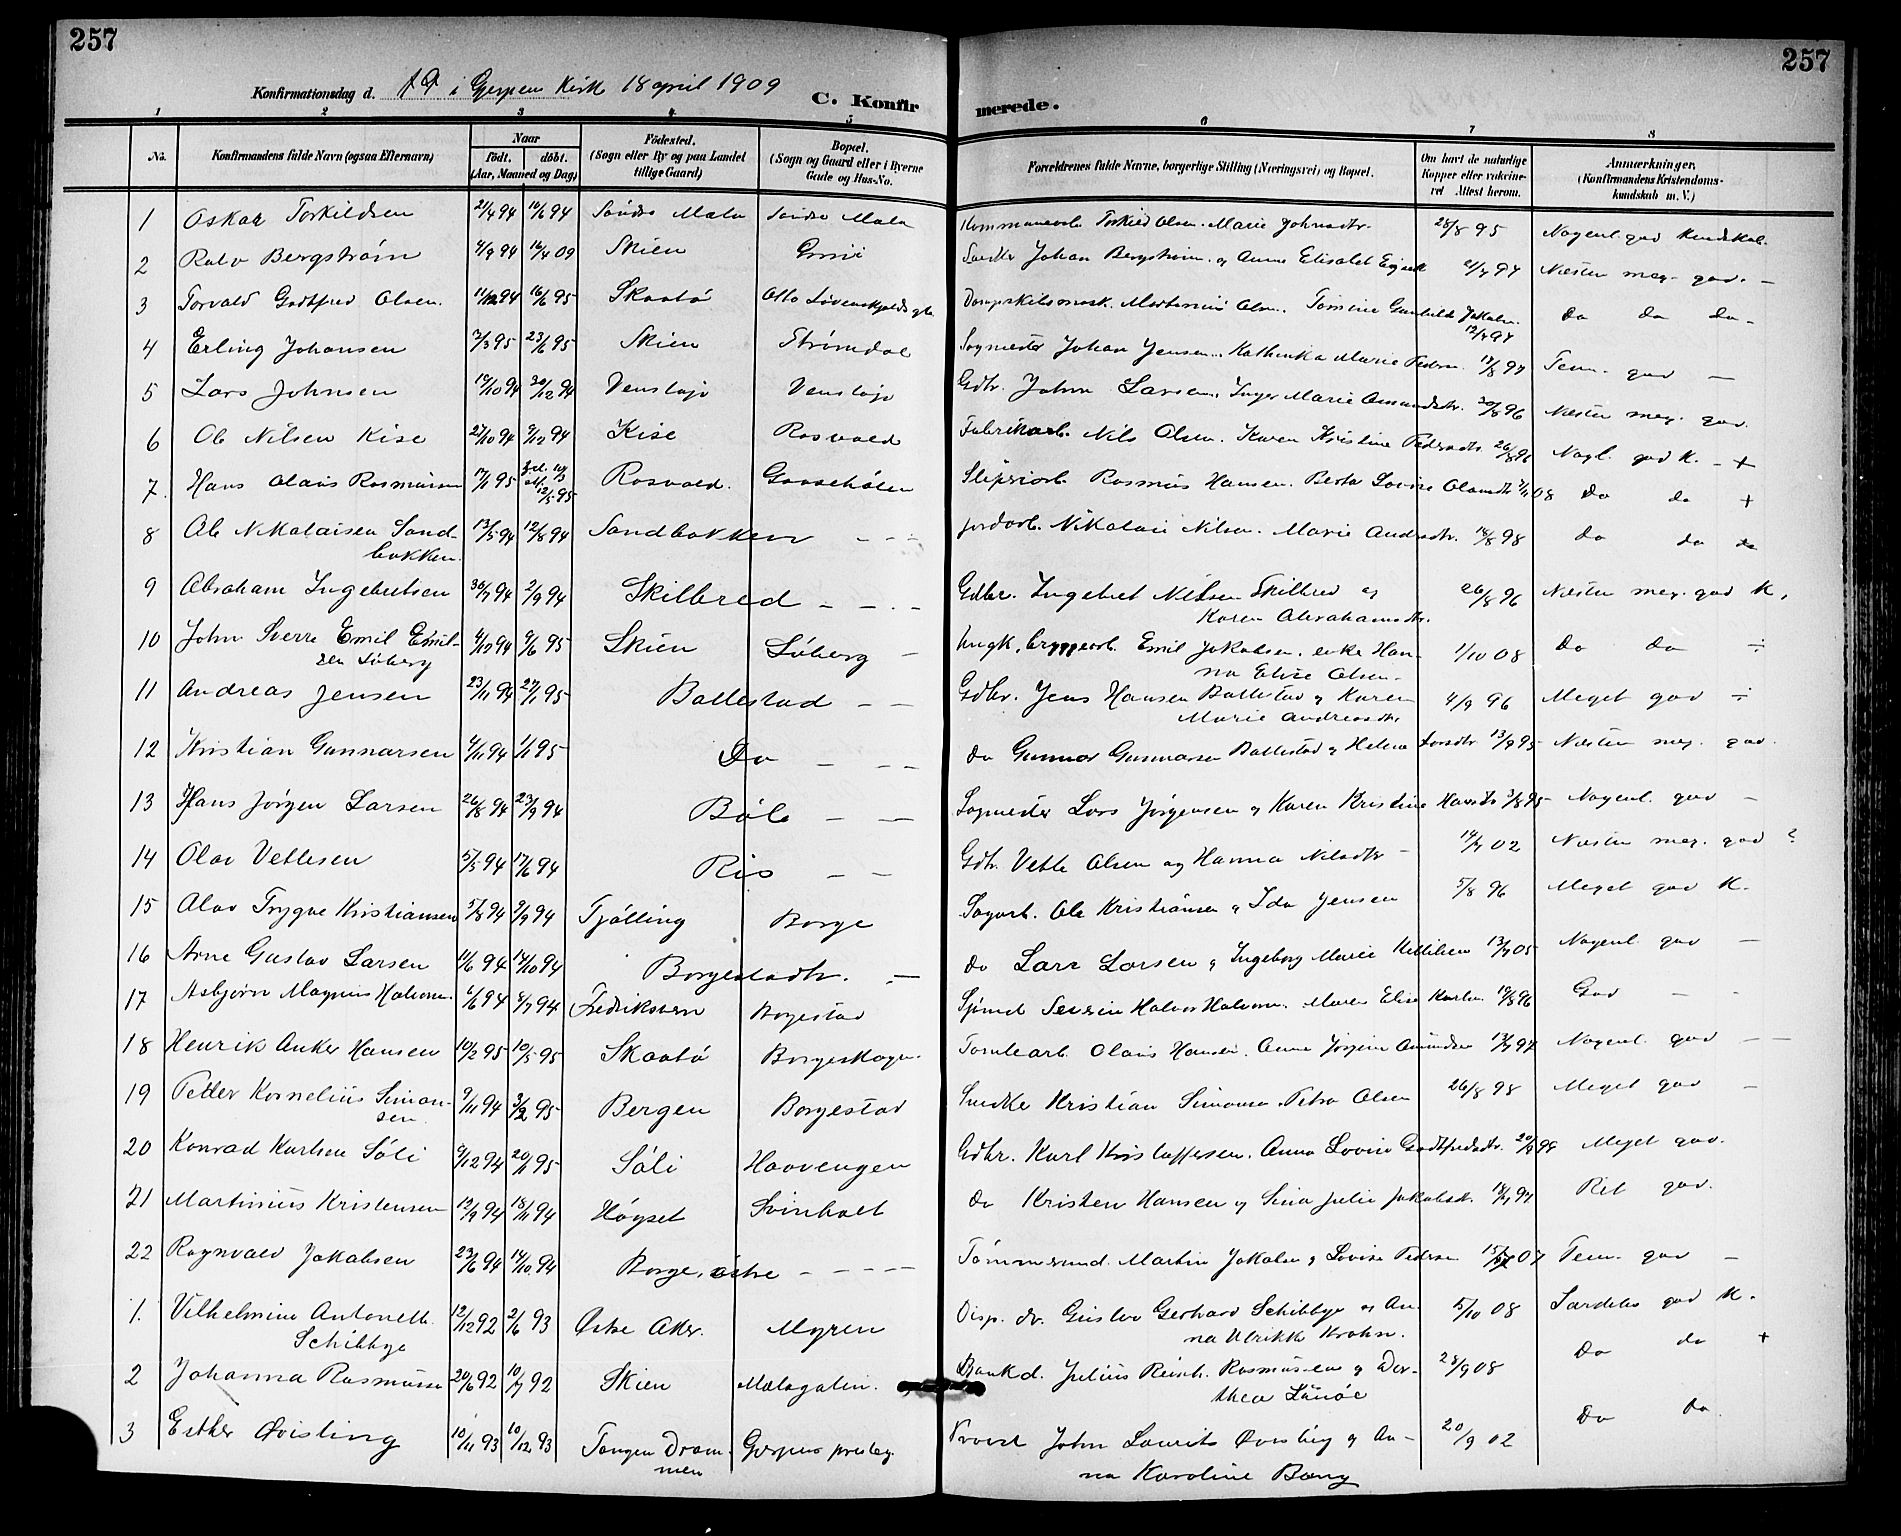 257
257
Konfirmationsdag d. i Gjerpen Kirk 18 april 1909
C. Konfir
merede.
1 2 3 4 5
6 7 8
No. Konfirmandens fulde Navn (ogsaa Efternavn)
Naar
født. døbt.
(Aar, Maaned og Dag)
Fødested.
(Sogn eller By og paa Landet
tillige Gaard)
Bopæl.
(Sogn og Gaard eller i Byerne
Gade og Hus-No.
Forældrenes fulde Navne, borgerlige Stilling (Næringsvei) og Bopæl.
Om havt de naturlige
Kopper eller vakcine-
ret Attest herom.
Anmærkninger.
(Konfirmandens Kristendoms-
kundskab m. V.)
1 Oskar Torkildsen 21/4 94 10/6 94 Søndre Mæla Søndre Mæla Torkild Olsen. Marie Johnsdtr. 28/8 95 Nogenl. god Kundskab.
2 Rolv Bergstrøm 4/9 94 16/4 09 Skien Smedk Johan Bergstrøm og Anna Elisabet Næsten meg. god. —
3 Torvald Godtfred Olsen. 11/12 94 16/6 95 Skaatø Otto Løvenskjolds gt. Martinius Olsen. Tomine Gunhilde Jakobs. 12/7 97 Do do do.
4 Erling Johansen 3/3 95 23/6 95 Skien Strømdal Sagmester Johan Jensen. Kathinka Marie Peders. 12/8 97 Tem. god —
5 Lars Johnsen 19/10 94 30/12 94 Venstøp Venstøp Gdbr. John Larsen. Inger Marie Amundsdtr. 30/8 96 Næsten meg. god.
6 Ole Nilsen Kise 27/10 94 9/12 94 Kise Rosvald Fabrikarb. Nils Olsen. Karen Kristine Pedersdtr. 26/8 96 Nogl. god K. - +
7. Hans Olaus Rasmusen 17/1 95 12/5 95 Rosvald. Gaaseholen Sliperiarb. Rasmus Hansen. Berta Lovise Olausdtr. 08 do do +
8 Ole Nikolaisen Sand-
bakken. 13/5 94 12/8 94 Sandbakken — — — Jordarb. Nikolai Nilsen. Marie Andersdtr. 18/8 98 do do
9 Abraham Ingebretsen 30/7 94 2/9 94 Skilbred — — — Gdbr. Ingebret Nilsen Skilbred og
Karen Abrahamsdtr. 26/8 96 Næsten meg. god K.
10 John Sverre Emil Emil-
sen Løberg 4/12 94 9/6 95 Skien Løberg — Ungk. bryggearb. Emil Jakobsen. enke Han-
na Elise Olsen. 1/10 08 Do do ÷
11 Andreas Jensen 23/11 94 27/1 95 Ballestad — — Gdbr. Jens Hansen Ballestad og Karen
Marie Andreasdtr. 4/9 96 Meget god ÷
12 Kristian Gunnarsen 4/11 94 1/1 95 Do — — — do Gunnar Gunnarsen Ballestad og Helene Larsdtr 13/9 95 Næsten meg. god.
13 Hans Jørgen Larsen 26/8 94 23/9 94 Bøle — — Sagmester Lars Jørgensen og Karen Kristine Hansdtr 3/8 95 Nogenl. god —
14 Olav Vetlesen 5/5 94 17/6 94 Ris — — Gdbr. Vetle Olsen og Hanna Nilsdtr — 14/7 02 Næsten meg. god ?
15 Olav Trygve Kristiansen 5/8 94 9/9 94 Tjølling Borge Sagarb. Ole Kristiansen og Ida Jensen 5/8 96 Meget god K.
16 Arne Gustav Larsen 11/6 94 14/10 94 Borgestadhr. — do Lars Larsen og Ingeborg Marie Kittilsen 13/7 05 Nogenl. god —
17 Asbjørn Magnus Halvorsen 6/6 94 8/7 94 Fredriksvern Borgestad Sjømd Severin Halvor Halvorsen. Maren Elise Karlsen. 19/8 96 God — -
18 Henrik Anker Hansen 10/2 95 10/5 95 Skaatø Borgeskogen. Tomtearb. Olaus Hansen. Anne Jørgine Amundsen 13/7 97 Nogenl. god — —
19 Petter Kornelius Simon-
sen 9/11 94 3/2 95 Bergen Borgestad Smedke Kristian Simonsen. Petra Olsen 26/8 98 Meget god —
20 Konrad Karlsen Søli 9/12 94 20/1 95 Søli Haavengen Gdbr. Karl Kristoffersen. Anna Lovise Godtfredsdtr. 20/9 99 Meget god.
21 Martinius Kristensen 12/9 94 18/11 94 Høyset Svinholt do Kristen Hansen og Sina Julie Jakobsdt. 18/7 97 Ret god.
22 Ragnvald Jakobsen 23/6 94 14/10 94 Borge, østre — — — — Tømmermd. Martin Jakobsen og Lovise Pedersen 07 Tem. god —
1. Vilhelmine Antonette
Schibbye 12/12 92 2/6 93 Østre Aker. Myren Disp. dr. Gustav Gerhard Schibbye og An-
na Ulrikke Krohn. 5/10 08 Særdeles god K.
2 Johanna Rasmussen 20/6 92 10/7 92 Skien Mælagaten. Bankd. Julius Reinh. Rasmussen og Dor-
thea Linöe 28/9 08 Do do +
3 Esther Qvisling 10/11 93 10/12 93 Tangen Dram-
men Gjerpens presteg. Provst John Laurits Qvisling og An-
na Karoline Bang 20/9 02 Do do.